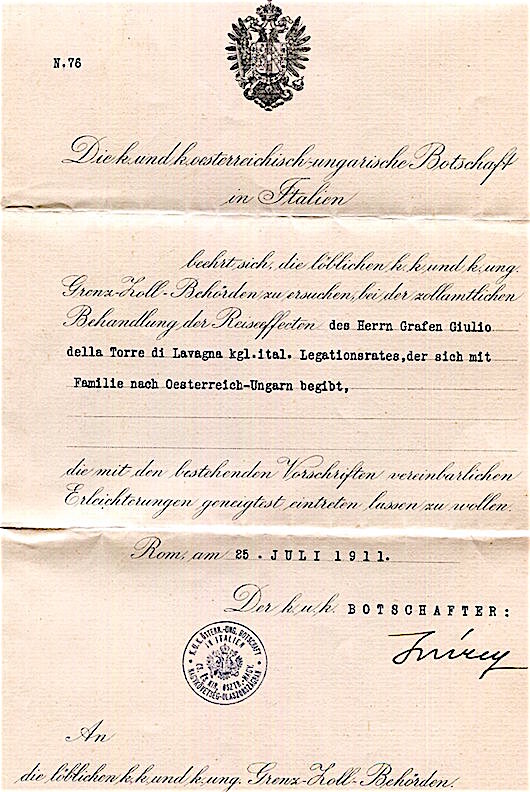 N.76
Die k. und k. oesterreichisch-ungarische Botschaft
in Italien
beehrt sich, die löblichen k. k. und k. ung.
Grenz-Zoll-Behörden zu ersuchen, bei der zollamtlichen
Behandlung der Reiseffecten des Herrn Grafen Giulio
della Torre di Lavagna kgl.ital. Legationsrates,der sich mit
Familie nach Oesterreich-Ungarn begibt,
die mit den bestehenden Vorschriften vereinbarlichen
Erleichterungen geneigtest eintreten lassen zu wollen.
Rom, am 25. JULI 1911.
Der k. u. k. BOTSCHAFTER:
K. U. K. ÖSTERR.-UNG. BOTSCHAFT
IN ITALIEN
CS. ÉS KIR. OSZTR.-MAGY.
NAGYKÖVETSÉG OLASZORSZÁGBAN
An
die löblichen k. k. und k. ung. Grenz-Zoll-Behörden.